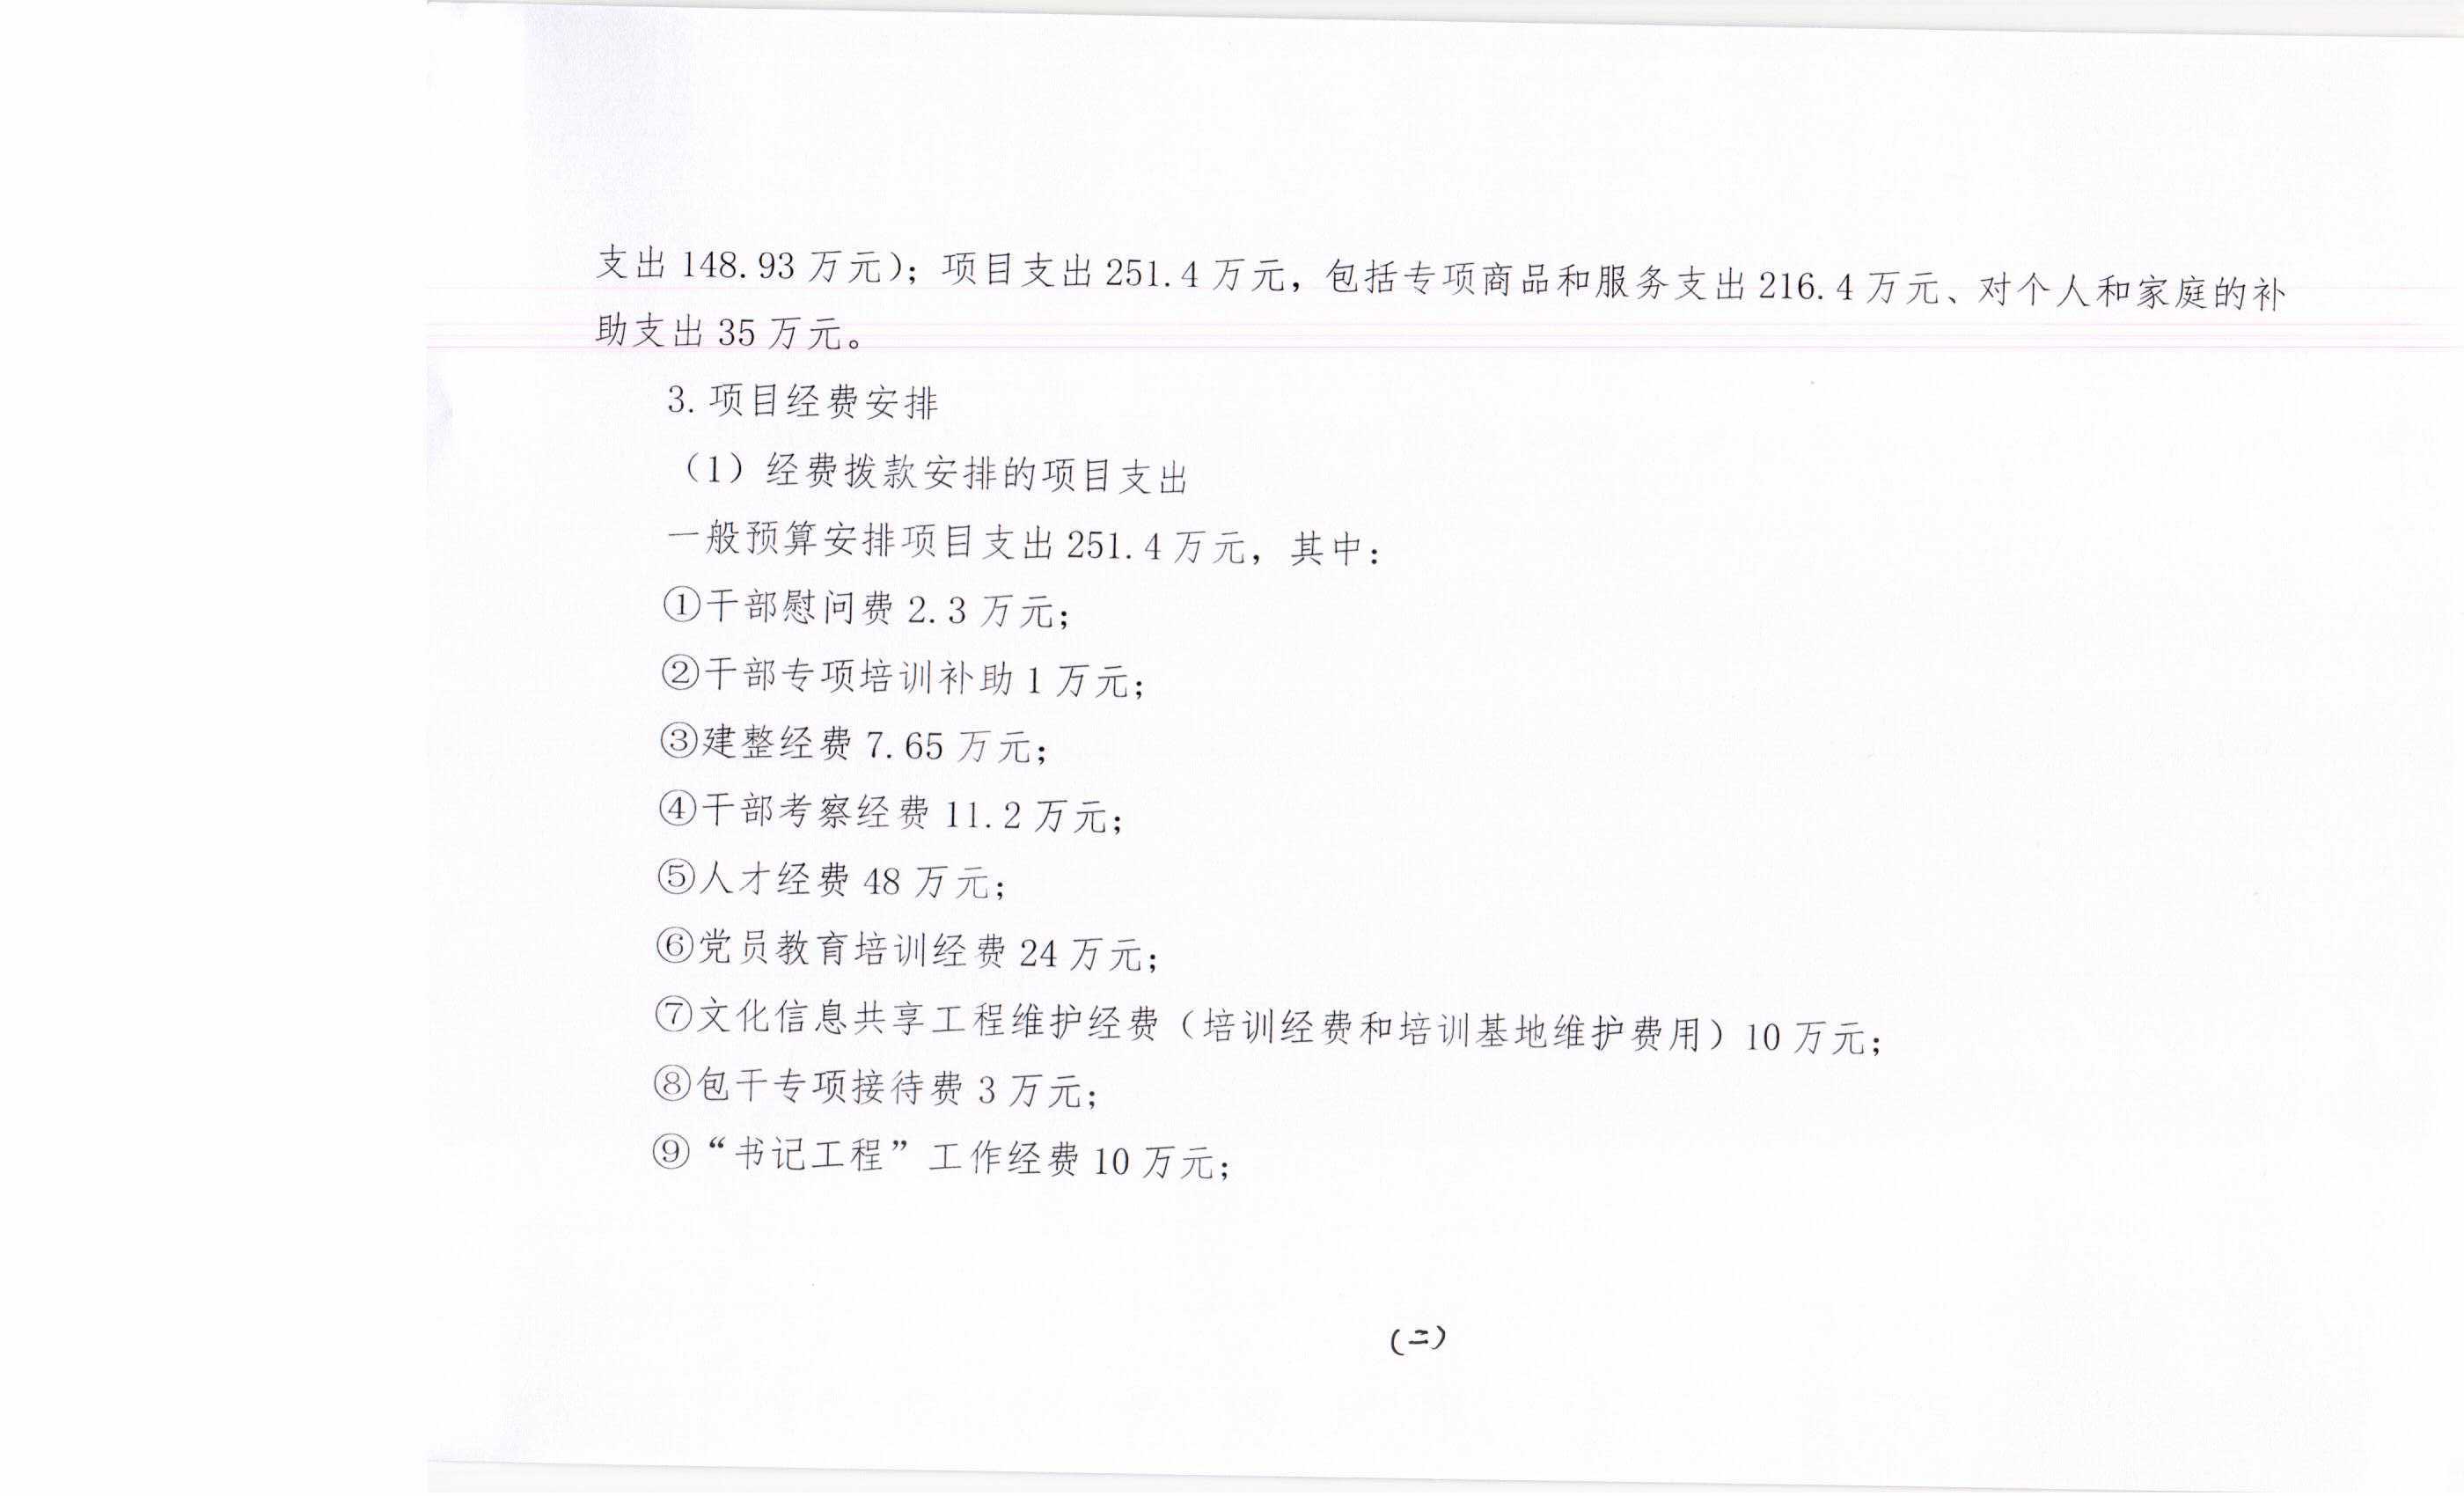 支出 148.93 万元）；项目支出 251.4 万元，包括专项商品和服务支出 216.4 万元、对个人和家庭的补
助支出 35 万元。
3. 项目经费安排
（1）经费拨款安排的项目支出
一般预算安排项目支出 251.4 万元，其中：
①干部慰问费 2.3 万元；
②干部专项培训补助 1 万元；
③建整经费 7.65 万元；
④干部考察经费 11.2 万元；
⑤人才经费 48 万元；
⑥党员教育培训经费 24 万元；
⑦文化信息共享工程维护经费（培训经费和培训基地维护费用）10 万元；
⑧包干专项接待费 3 万元；
⑨“书记工程”工作经费 10 万元；
（二）